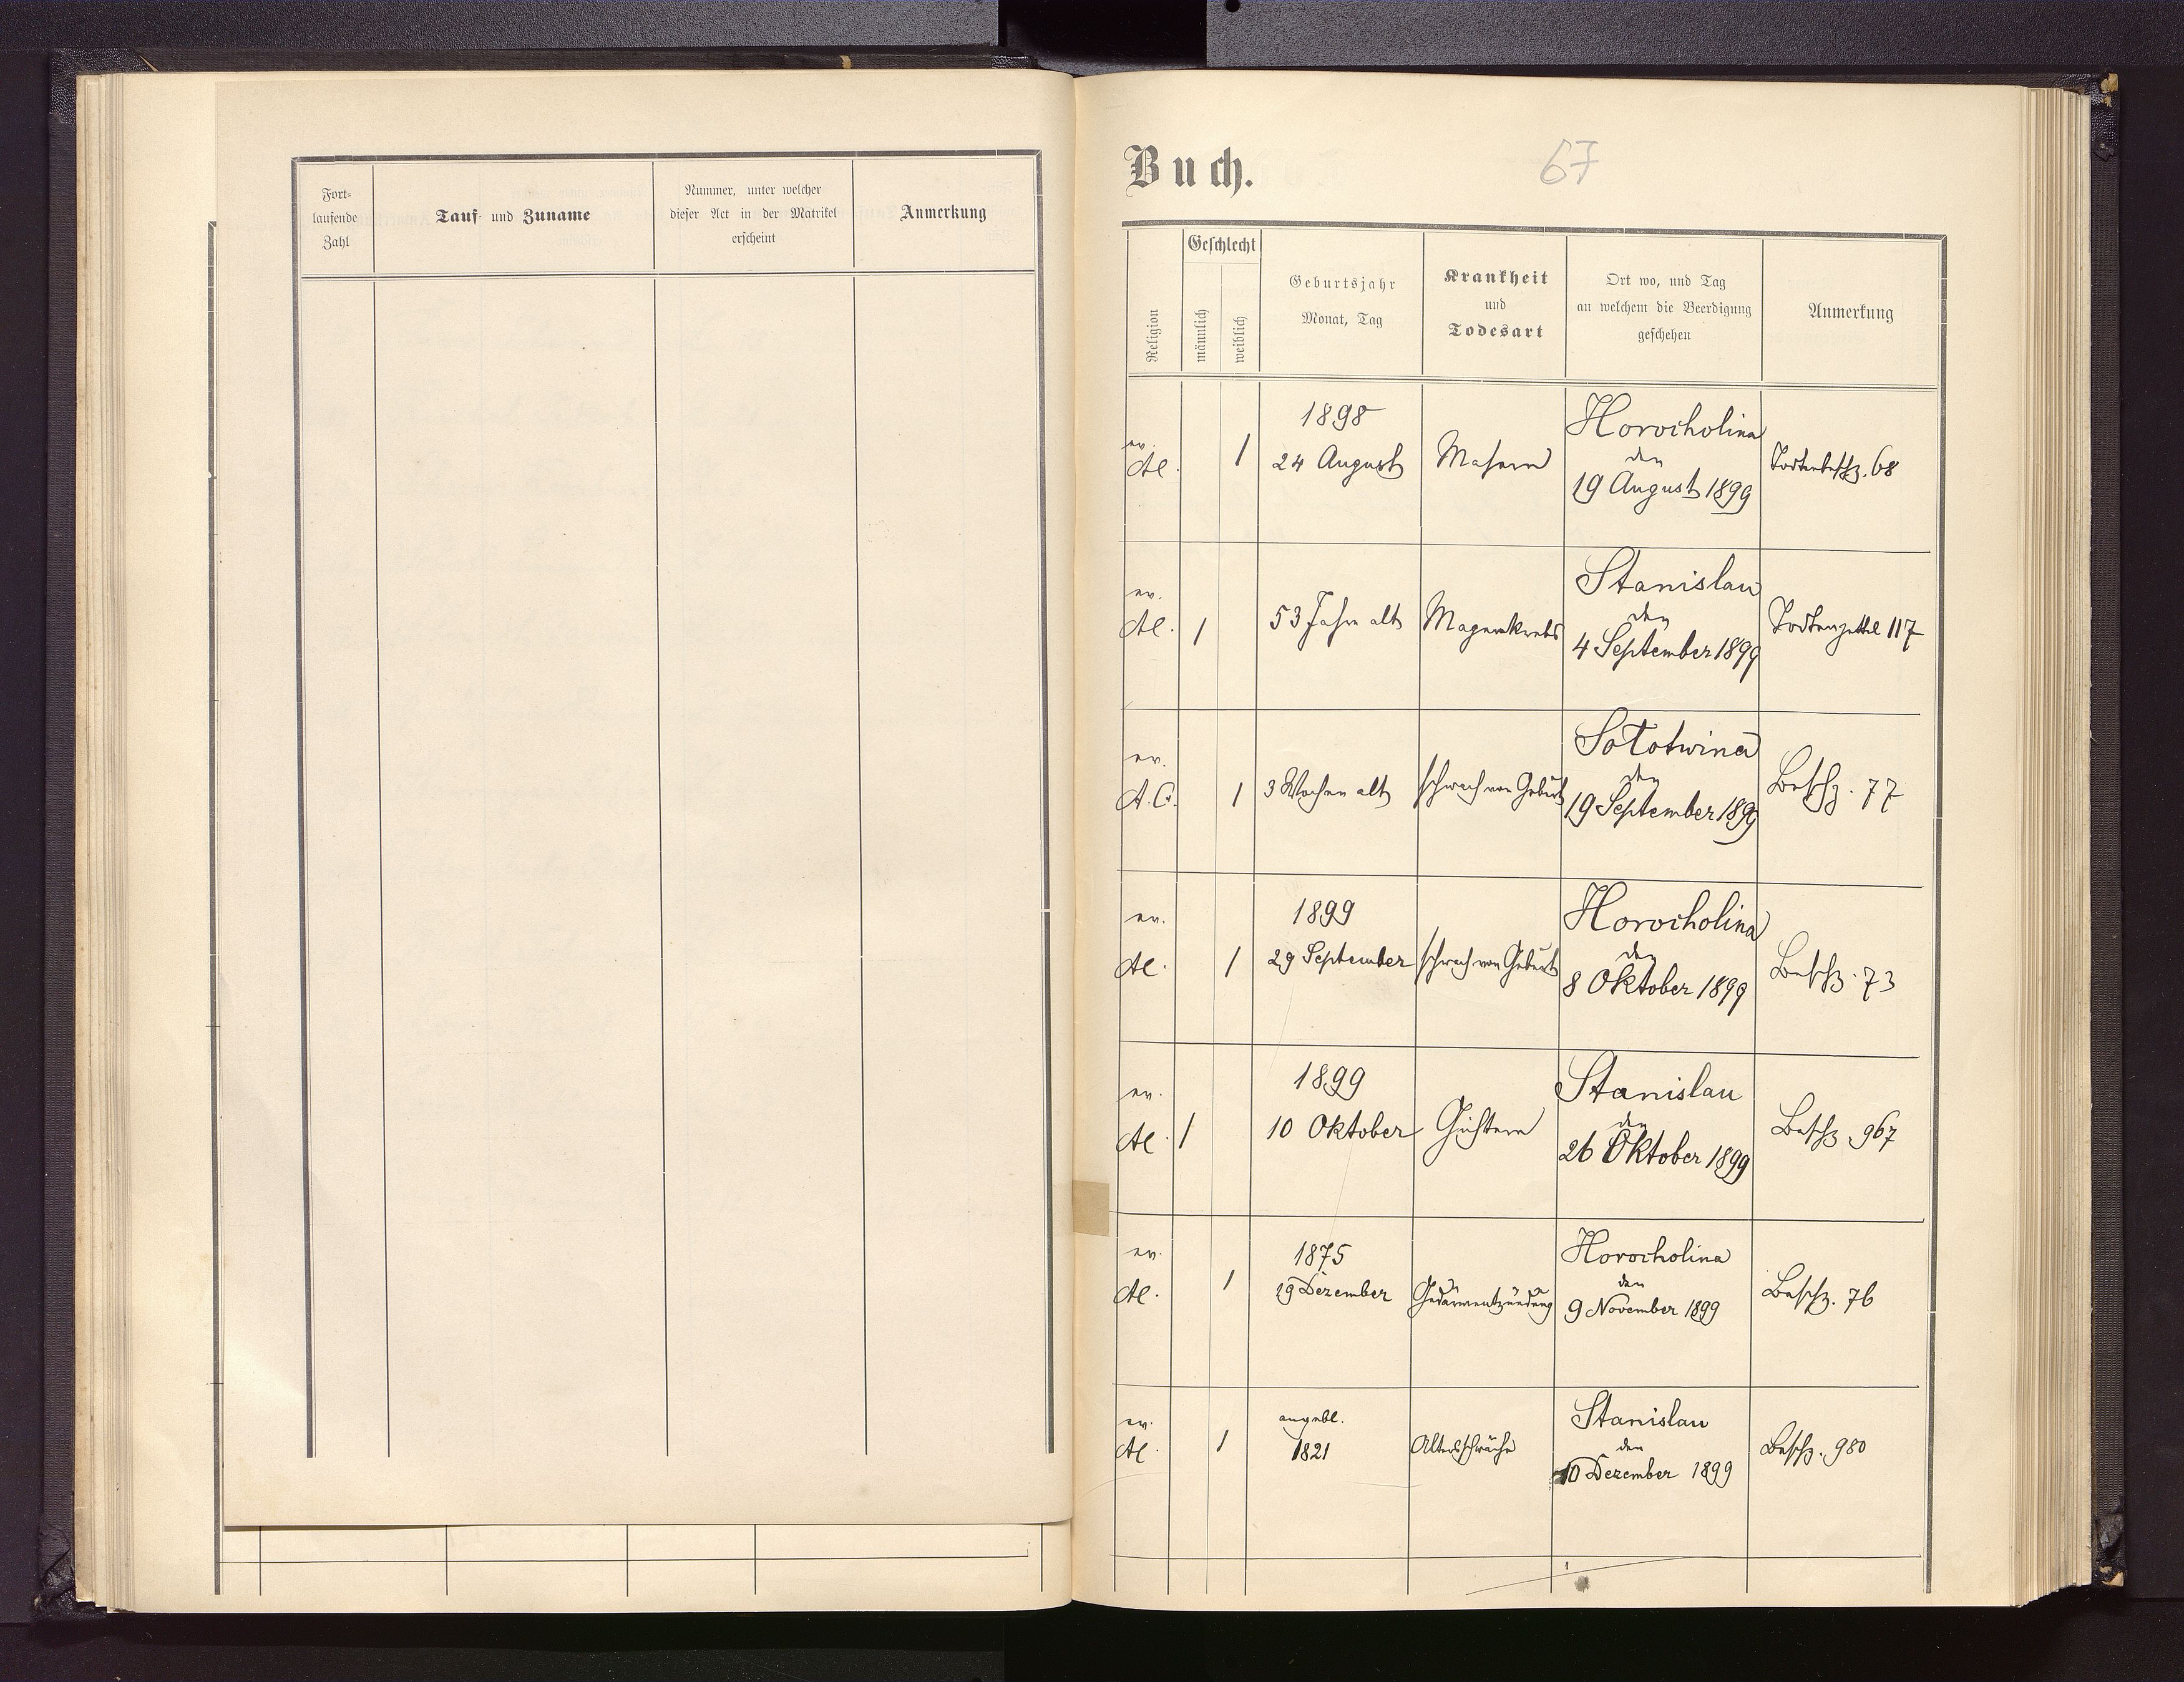 Fort-
laufende
Zahl
Tauf- und Zuname
Nummer, unter welcher
dieser Act in der Matrikel
erscheint
Anmerkung
Buch.
67
Religion
Geschlecht
männlich
weiblich
Geburtsjahr
Monat, Tag
Krankheit
und
Todesart
Ort wo, und Tag
an welchem die Beerdigung
geschehen
Anmerkung
ev.
AC.
1
1898
24 August
Masern
Horocholina
den
19 August 1899
Todtenbeschz. 68
ev.
AC.
1
53 Jahre alt
Magenkrebs
Stanislau
den
4 September 1899
Todtenzettel 117
ev.
A.C.
1
3 Wochen alt
schwach von Geburt
Sototwina
den
19 September 1899
Beschz. 77
ev.
AC.
1
1899
29 September
schwach von Geburt
Horocholina
den
8 Oktober 1899
Beschz. 73
ev.
AC.
1
1899
10 Oktober
Gichtern
Stanislau
den
26 Oktober 1899
Beschz. 967
ev.
AC.
1
1875
29 Dezember
Gedärmentzündung
Horocholina
den
9 November 1899
Beschz. 76
ev.
AC.
1
angebl.
1821
Altersschwäche
Stanislau
den
10 Dezember 1899
Beschz. 980